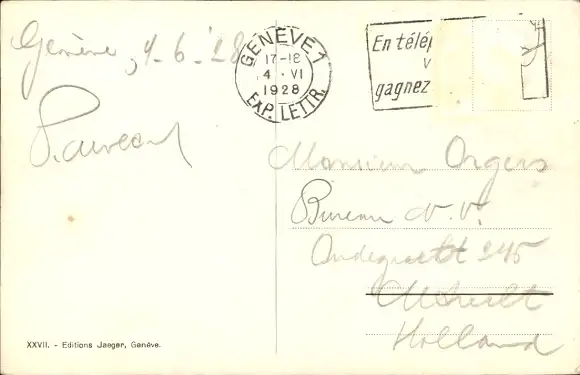 Genève, 4-6-28
GENÈVE-1
17-18
4·VI
1928
EXP. LETTR.
En télép
v
gagnez
Monsieur Orgers
Bureau N.V.
Oudegracht 245
Utrecht
Holland
XXVII. - Editions Jaeger, Genéve.